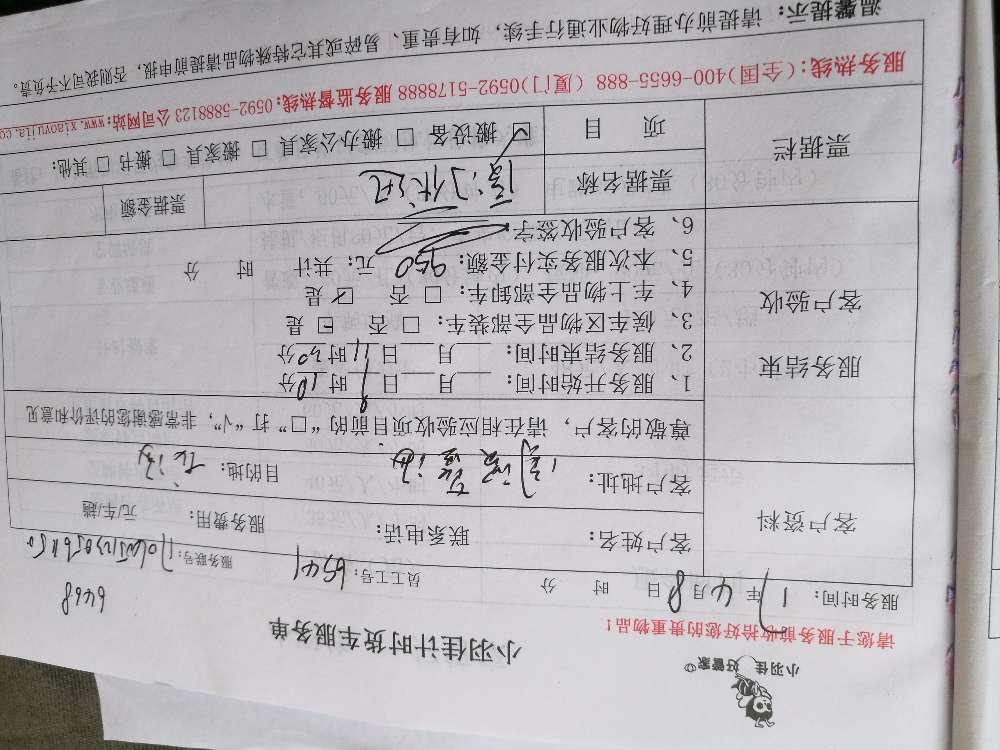 小羽佳 好管家
小羽佳计时货车服务单
请您于服务前收拾好您的贵重物品！
6468
服务时间： 17 年 4 月 8 日 时 分 员工工号： 6541 服务联号：
客户资料
客户姓名： 联系电话： 服务费用： 元/车/趟
客户地址： 目的地：
尊敬的客户，请在相应验收项目前的“□”打“√”，非常感谢您的评价和意见
服务结束
客户验收
1、服务开始时间： 月 日 9 时 10 分
2、服务结束时间： 月 日 11 时 20 分
3、候车区物品全部装车： □ 否 ☑ 是
4、车上物品全部卸车： □ 否 ☑ 是
5、本次服务实付金额： 950 元；共计 时 分
6、客户验收签字
票据栏
票据名称 票据金额
项 目 ☑ 搬设备 □ 搬办公家具 □ 搬家具 □ 搬书 □ 其他：
服务热线：(全国)400-6655-888 (厦门)0592-5178888 服务监督热线：0592-5888123 公司网站：www.xiaoyujia.co
温馨提示： 请提前办理好物业通行手续，如有贵重、易碎或其它特殊物品请提前申报，否则我司不予负责。